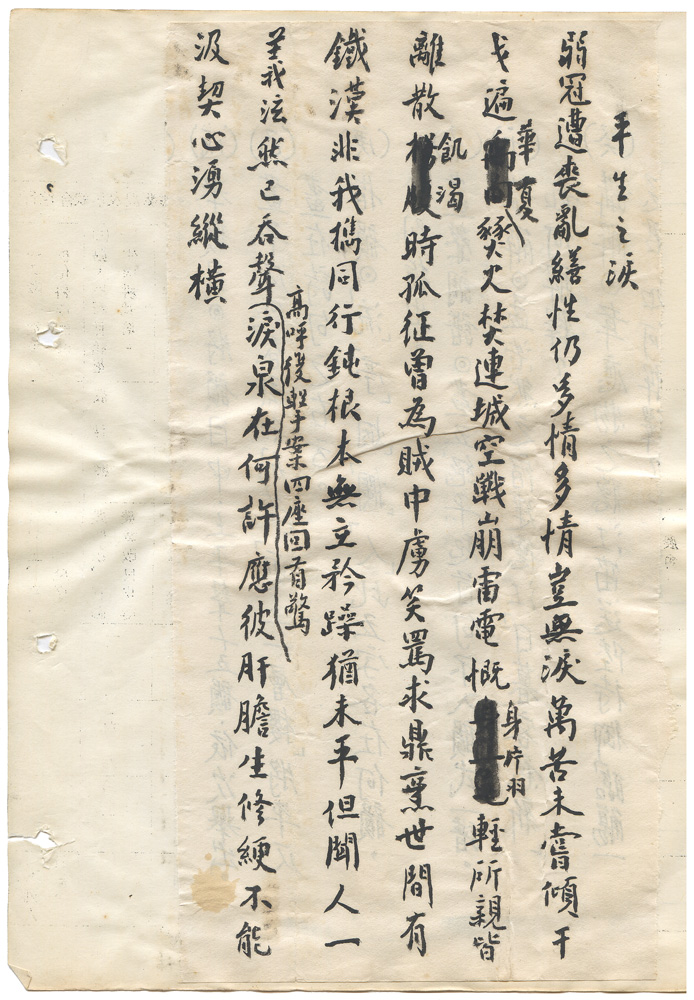 平生之淚
弱冠遭喪亂繕性仍多情多情豈無淚萬苦未嘗傾干
戈遍華夏燹火焚連城空戰崩雷電慨身片羽輕所親皆
離散飢渴時孤征曾為賊中虜笑罵求鼎烹世間有
鐵漢非我攜同行鈍根本無立矜躁猶未平但聞人一
義泫然已吞聲高呼復擊案四座回首驚淚泉在何許應彼肝膽生修綆不能
汲契心湧縱橫